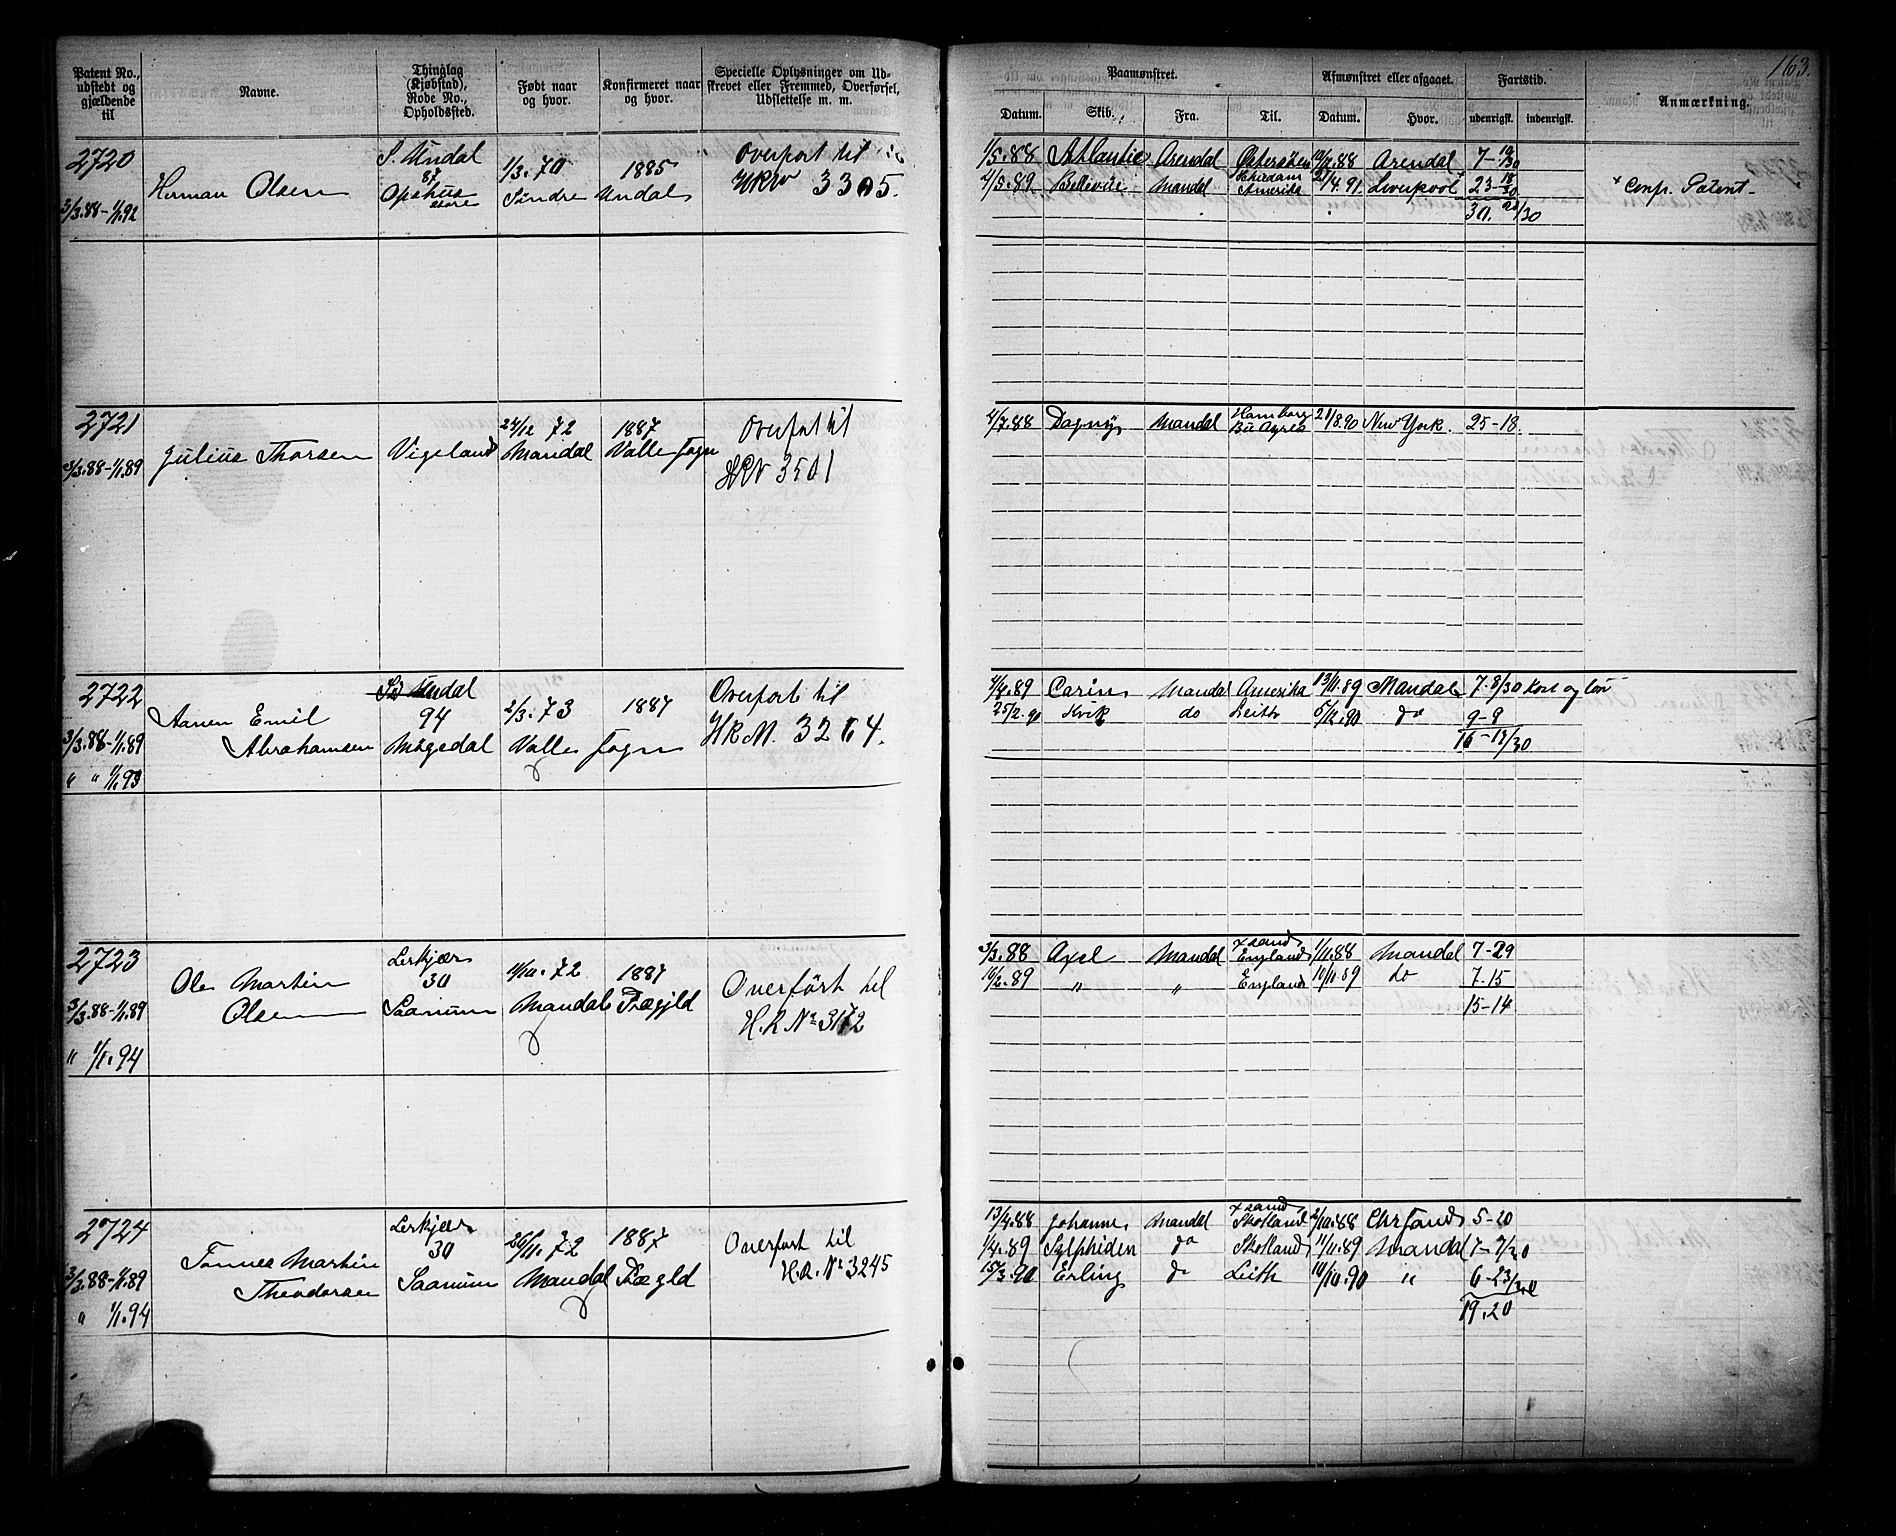 163.
Patent No., udstedt og gjældende til
Navne.
Thinglag (Kjøbstad), Rode No., Opholdssted.
Født naar og hvor.
Konfirmeret naar og hvor.
Specielle Oplysninger om Udskrevet eller Fremmed, Overførsel, Udslettelse m. m.
Paamønstret.
Afmønstret eller afgaaet.
Fartstid.
Anmærkning.
Datum. Skib. Fra. Til. Datum. Hvor. udenrigsk. indenrigsk.
2720
3/3.88-1/1.92
Herman Olsen
S. Undal
87
Opsahus
store
1/3.70
Søndre Undal
1885
Overført til
HRN 3305.
1/5.88 Atlantic Arendal Østersøen 88 Arendal 7- 19/30
4/5.89 Bellevue Mandal Amerika 21/4.91. Liverpool + 23- 18/30
30. /30
+ Conf. Patent-
2721
3/3.88-1/1.89
Julius Thorsen
Vigeland
24/12 72
Mandal
1887
Valle sogn
Overført til
HRN 3501
4/7.88 Dagny Mandal Hamborg Bu Ayres 21/8.90 New York. 25-18.
2722
3/3.88-1/1.89
" " 1/1.93
Aanen Emil
Abrahamsen
Sø Undal
94
Møgedal
2/3.73
1887
Valle sogn
Overført til
HRN. 3264.
4/4.89 Carin Mandal Amerika 13/11.89 Mandal 7.8/30
25/2.90 Kvik do Leith 5/12.90 do 9-9
16-17/30
2723
3/3.88-1/1.89
" 1/1.94
Ole Martin
Olsen
Lerkjær
30
Saanum
72
Mandal
1887
Prægjld
Overført til
H.R No 3172
3/3.88 Axel Mandal x sand England 1/11.88 Mandal 7-29
16/2.89 " " England 10/11.89 do 7.15
15-14
2724
3/3.88-1/1.89
" 1/1.94
Tønnes Martin
Theodorsen
Lerkjær
30
Saanum
26/11.72
Mandal
1887
Prægld
Overført til
H.R. No 3245
13/4.88 Johanne Mandal x sand Skotland 2/10.88 Chrsand 5-20
1/4.89 Sylphiden do Skotland 11/11.89 Mandal 7-7/30
15/3.90 Erling do Leith 10/10.90 " 6-23/30
19.20